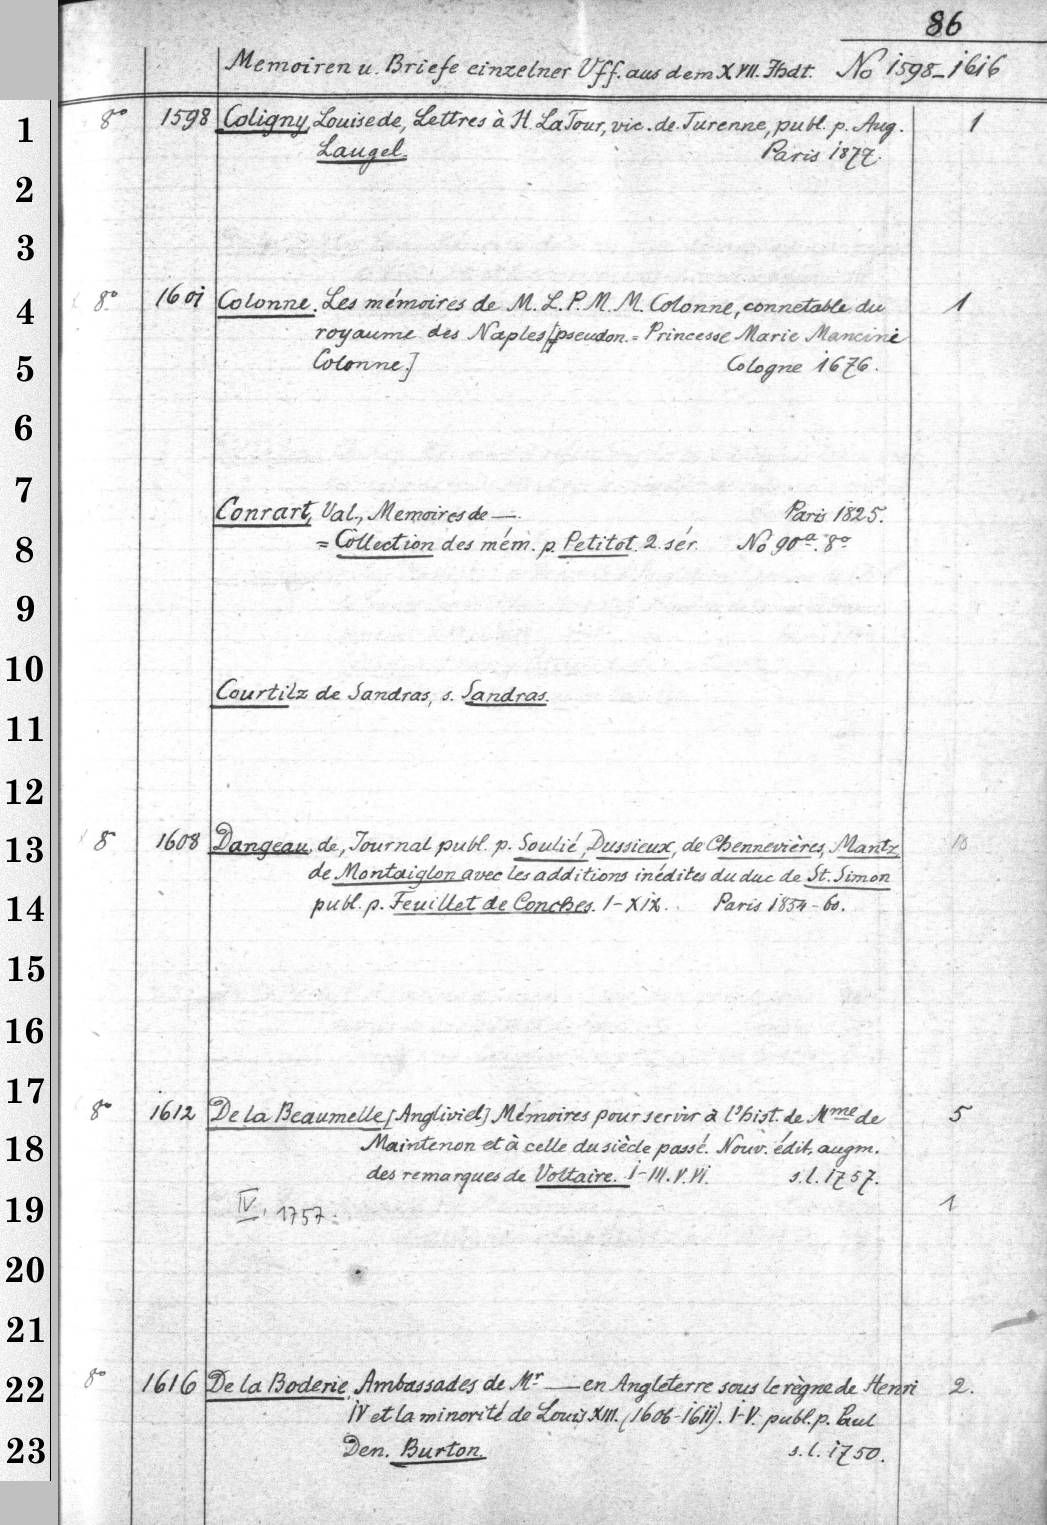 86
Memoiren u. Briefe einzelner Vff. aus dem XVII. Jhdt. No 1598-1616
1 8° 1598 Coligny, Louise de, Lettres à H. La Tour, vic. de Turenne, publ. p. Aug. 1
Laugel. Paris 1877.
2
3
4 8° 1601 Colonne. Les mémoires de M. L. P. M. M. Colonne, connetable du 1
royaume des Naples [pseudon. = Princesse Marie Mancini
5 Colonne.] Cologne 1676.
6
7 Conrart, Val., Memoires de —. Paris 1825.
8 = Collection des mém. p. Petitot. 2. sér. No 90a. 8°
9
10 Courtilz de Sandras, s. Sandras.
11
12
13 8° 1608 Dangeau, de, Journal publ. p. Soulié, Dussieux, de Chennevières, Mantz
de Montaiglon avec les additions inédites du duc de St. Simon
14 publ. p. Feuillet de Conches. I-XIX. Paris 1854-60.
15
16
17 8° 1612 De la Beaumelle [Angliviel] Mémoires pour servir à l'hist. de Mme de 5
18 Maintenon et à celle du siècle passé. Nouv. édit. augm.
des remarques de Voltaire. I-III. V. VI. s. l. 1757.
19 IV, 1757. 1
20
21
22 8° 1616 De la Boderie, Ambassades de Mr — en Angleterre sous le règne de Henri 2.
IV et la minorité de Louis XIII. (1606-1611). I-V. publ. p. Paul
23 Den. Burton. s. l. 1750.